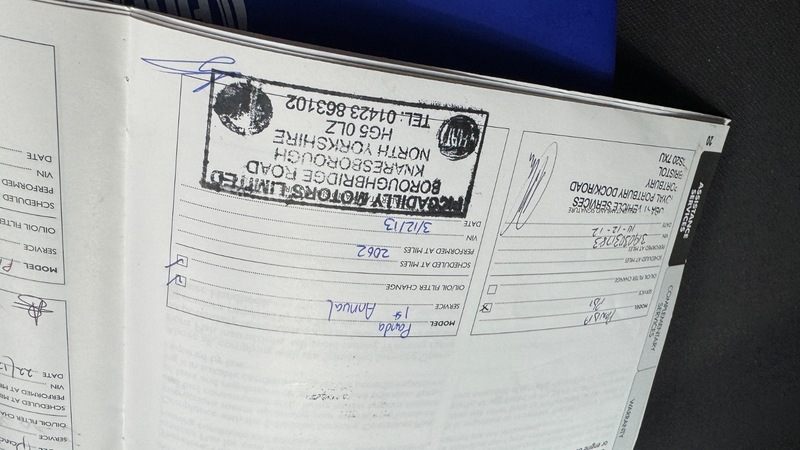 20
ASSISTANCE
SERVICES
COMPLEMENTARY
SERVICES
WARRANTY
MODEL PANDA
SERVICE PDI
OIL/OIL FILTER CHANGE
SCHEDULED AT MILES
PERFORMED AT MILES
VIN
DATE 10-12-12
VEHICLE SERVICES
ROYAL PORTBURY DOCK ROAD
PORTBURY
BRISTOL
BS20 7XU
MODEL Panda
SERVICE 1st Annual
OIL/OIL FILTER CHANGE
SCHEDULED AT MILES
PERFORMED AT MILES 2062
VIN
DATE 3/12/13
PICCADILLY MOTORS LIMITED
BOROUGHBRIDGE ROAD
KNARESBOROUGH
NORTH YORKSHIRE
HG5 0LZ
TEL: 01423 863102
FIAT
MODEL
SERVICE
OIL/OIL FILTER
SCHEDULED
PERFORMED
VIN
DATE
SERVICE
OIL/OIL FILTER CHA
SCHEDULED AT M
PERFORMED AT M
VIN
DATE 22/12